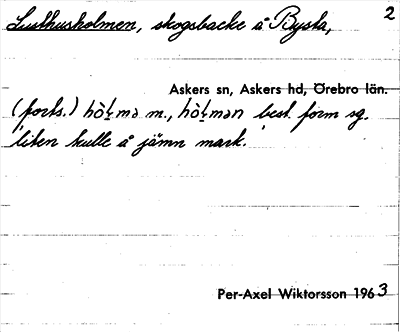 Lusthusholmen, skogsbacke å Bysta, 2
Askers sn, Askers hd, Örebro län.
(forts.) hò̀ɫmə m., hò̀ɫmən best. form sg.
'liten kulle å jämn mark.'
Per-Axel Wiktorsson 1963